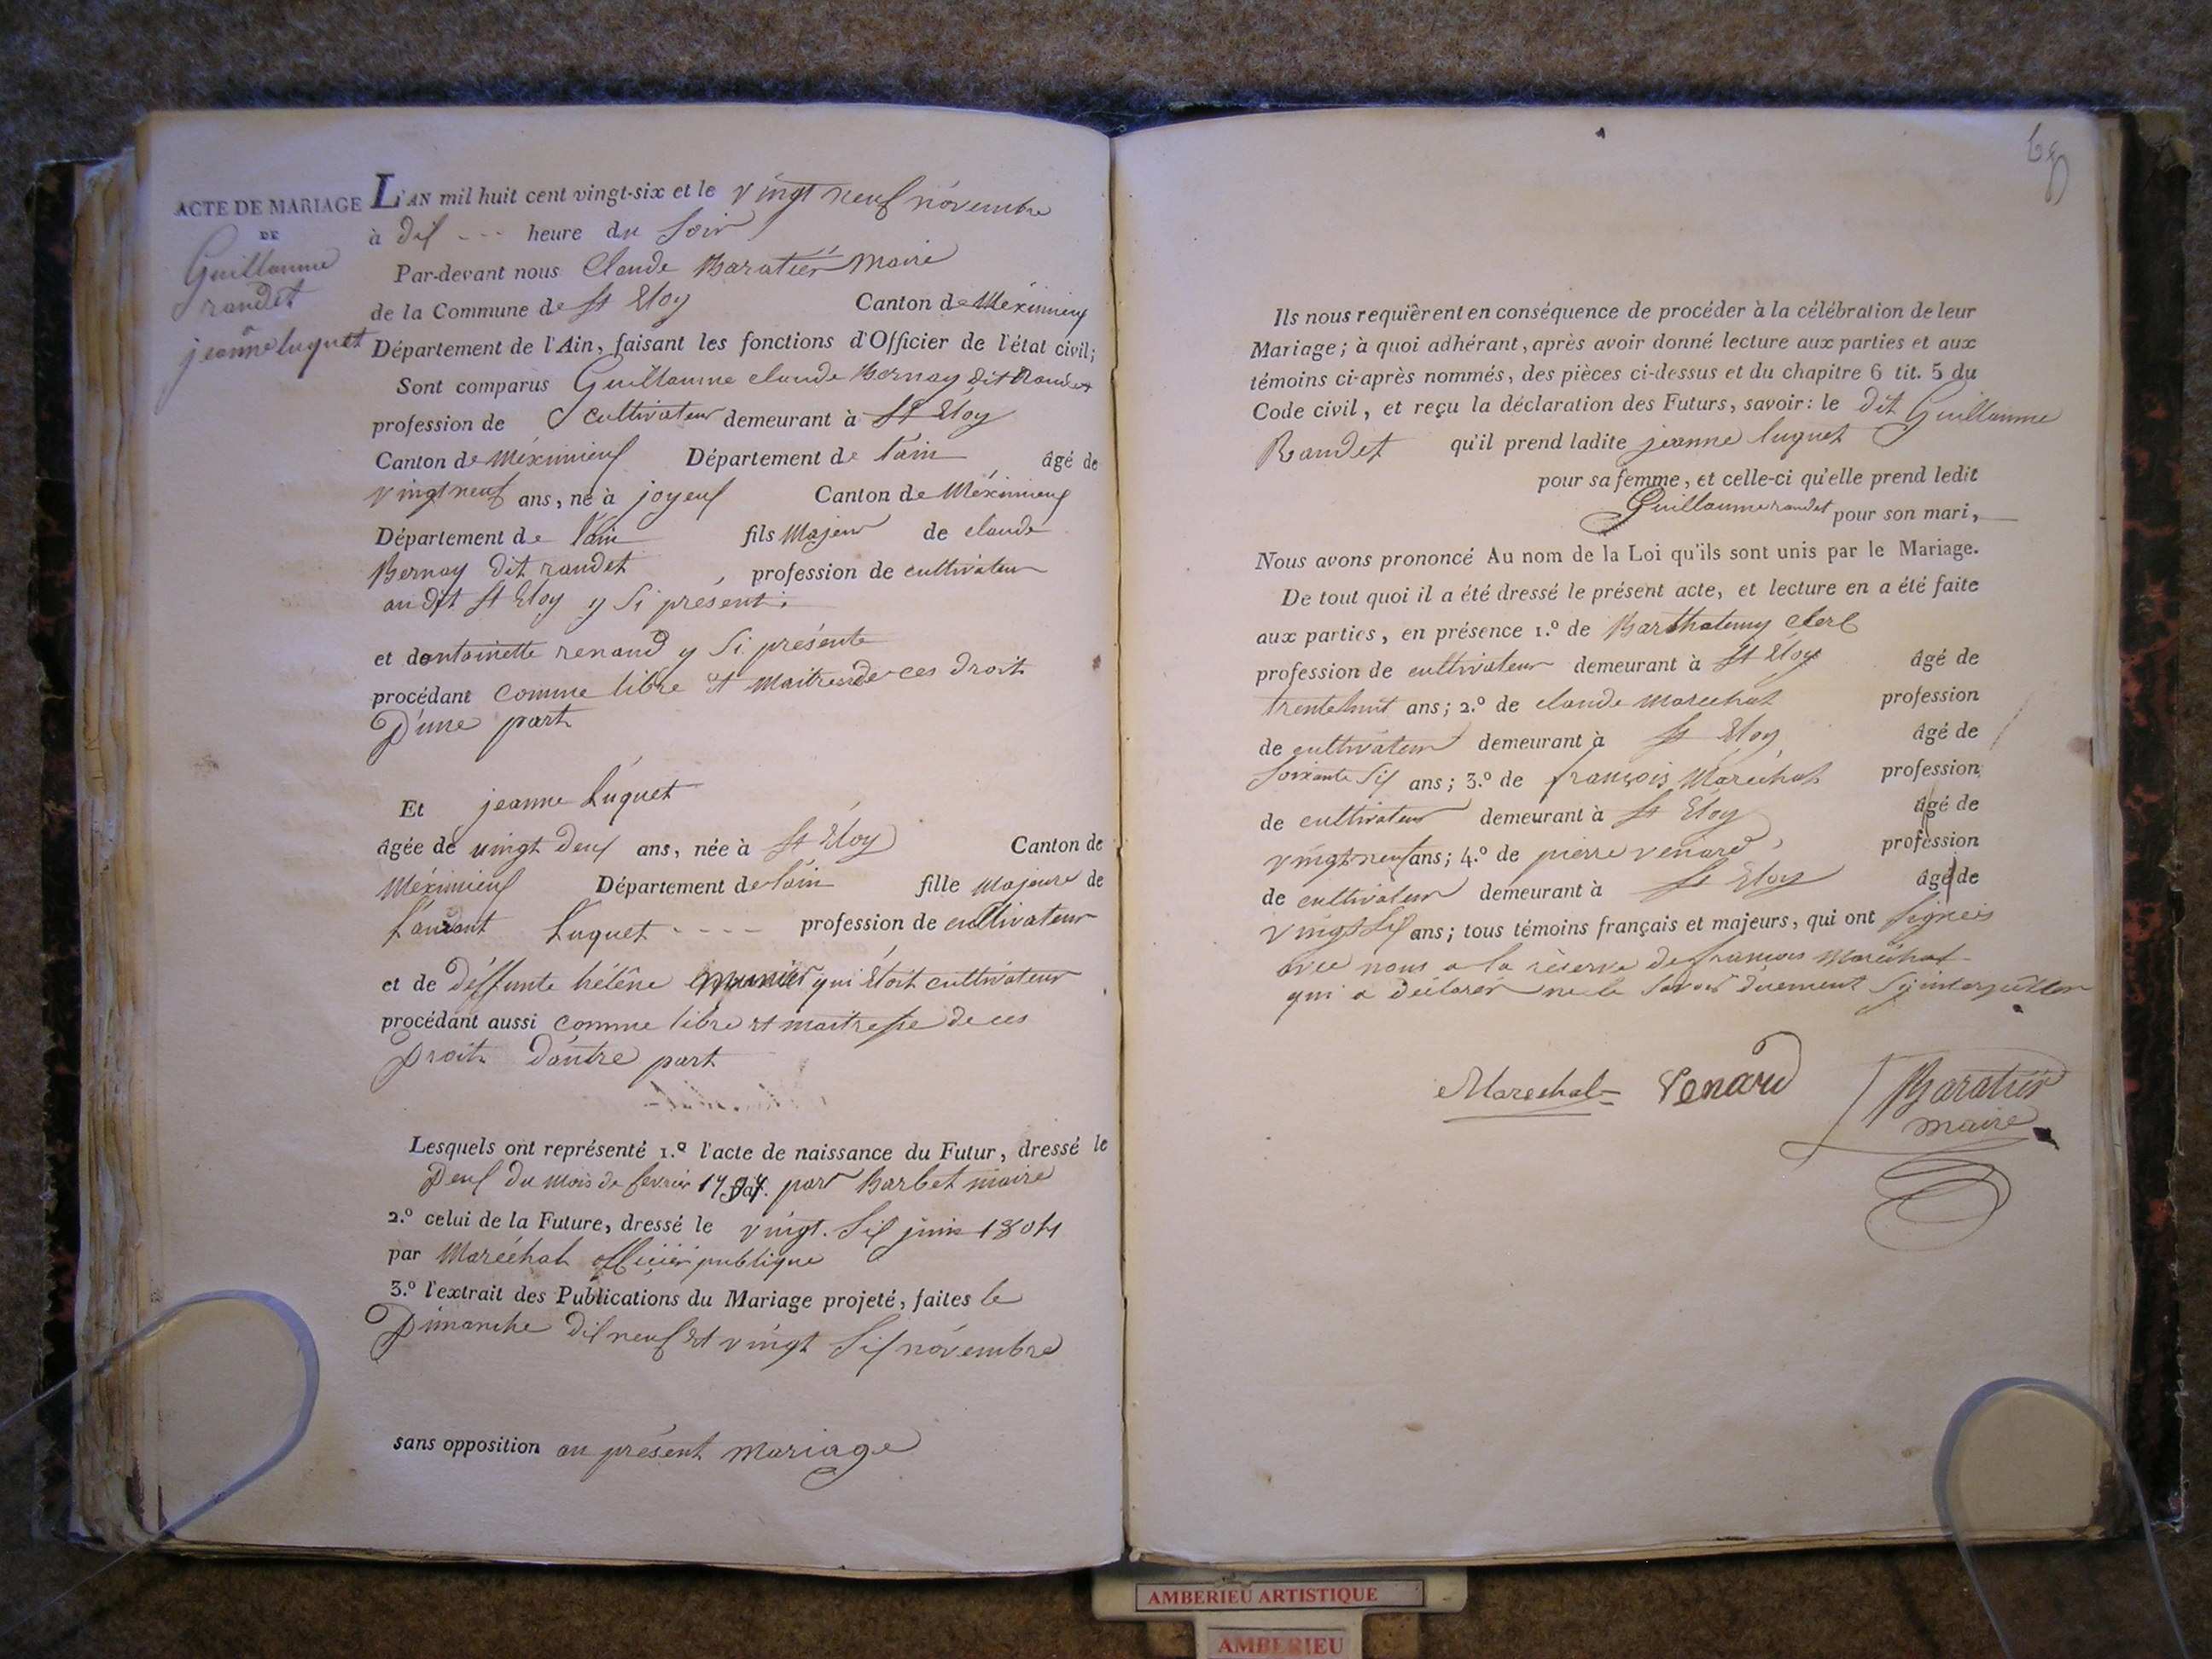 ACTE DE MARIAGE
DE
Guillaume
randet
jeanne luquet
L'AN mil huit cent vingt-six et le vingt neuf novembre
à dix --- heure du soir
Par-devant nous Claude Baratier maire
de la Commune de St Eloy Canton de Méximieux
Département de l'Ain, faisant les fonctions d'Officier de l'état civil;
Sont comparus Guillaume claude Bernay dit Randet
profession de cultivateur demeurant à St Eloy
Canton de Méximieux Département de l'ain âgé de
vingt neuf ans, né à joyeux Canton de Méximieux
Département de l'ain fils Majeur de claude
Bernay dit randet profession de cultivateur
audit St Eloy y si présent;
et dantoinette renaud y si présente
procédant comme libre et maitre de ces droit
D'une part
Et jeanne Luquet
âgée de vingt deux ans, née à St Eloy Canton de
Méximieux Département de l'ain fille majeure de
Laurant Luquet ---- profession de cultivateur
et de déffunte hélène qui étoit cultivateur
procédant aussi comme libre et maitresse de ces
Droits d'autre part
Lesquels ont représenté 1.º l'acte de naissance du Futur, dressé le
Deux du mois de fevrier par Barbet maire
2.º celui de la Future, dressé le vingt. six juin 1804
par Maréchal officier publique
3.º l'extrait des Publications du Mariage projeté, faites le
Dimanche dix neuf et vingt six novembre
sans opposition au présent mariage
Ils nous requièrent en conséquence de procéder à la célébration de leur
Mariage; à quoi adhérant, après avoir donné lecture aux parties et aux
témoins ci-après nommés, des pièces ci-dessus et du chapitre 6 tit. 5 du
Code civil, et reçu la déclaration des Futurs, savoir: le dit Guillaume
Randet qu'il prend ladite jeanne luquet
pour sa femme, et celle-ci qu'elle prend ledit
Guillaume randet pour son mari,
Nous avons prononcé Au nom de la Loi qu'ils sont unis par le Mariage.
De tout quoi il a été dressé le présent acte, et lecture en a été faite
aux parties, en présence 1.º de Barthalemy Clerc
profession de cultivateur demeurant à St Eloy âgé de
trente huit ans; 2.º de claude marechal profession
de cultivateur demeurant à St Eloy âgé de
soixante six ans; 3.º de françois Maréchal profession
de cultivateur demeurant à St Eloy âgé de
vingt neuf ans; 4.º de pierre venard profession
de cultivateur demeurant à St Eloy âgé de
vingt six ans; tous témoins français et majeurs, qui ont signés
avec nous a la réserve de françois Maréchal
qui a déclarer ne le savoir duement
Marechal Venard Baratier
maire
AMBERIEU ARTISTIQUE
AMBERIEU